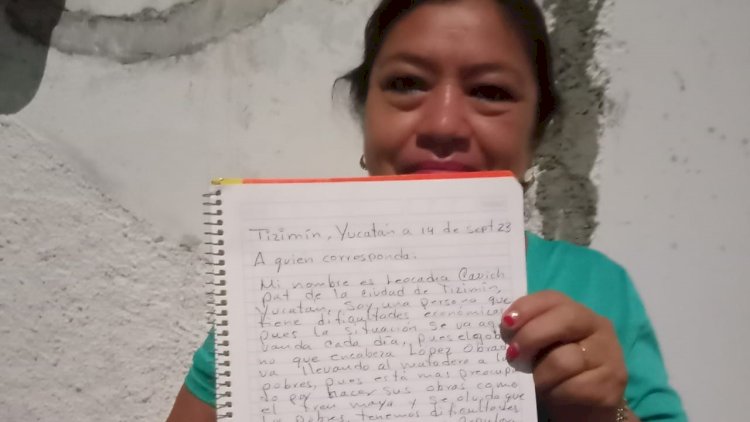 Tizimín, Yucatán a 14 de sept 23
A quien corresponda:
Mi nombre es Leocadia Cavich
pat de la ciudad de Tizimín,
Yucatán, Soy una persona que
tiene dificultades económicas
pues la situación se va agra
vando cada día, pues el gobier
no que encabeza López Obrador
va llevando al matadero a los
pobres, pues está más preocupa
do por hacer sus obras como
el tren maya y se olvida que
los pobres tenemos dificultades